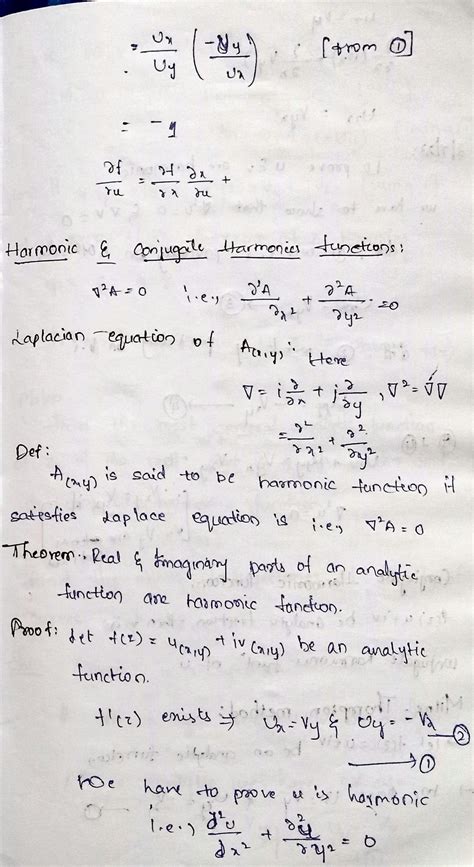 = Ux/Uy (-Uy/Ux) . [from ①]
= -y
∂f/∂u = ∂f/∂x ∂x/∂u +
Harmonic & Conjugate Harmonics functions:
∇²A = 0 i.e., ∂²A/∂x² + ∂²A/∂y² = 0
Laplacian equation of A(x,y): Here
∇ = i ∂/∂x + j ∂/∂y , ∇² = ∇∇
= ∂²/∂x² + ∂²/∂y²
Def:
A(x,y) is said to be harmonic function if
satisfies Laplace equation is i.e., ∇²A = 0
Theorem: Real & Imaginary parts of an analytic
function are harmonic fanction.
Proof: Let f(z) = u(x,y) + iv(x,y) be an analytic
function.
f'(z) exists ⇒ Ux = Vy & Uy = -Vx
②
→①
We have to prove u is harmonic
i.e., d²u/dx² + ∂²u/∂y² = 0